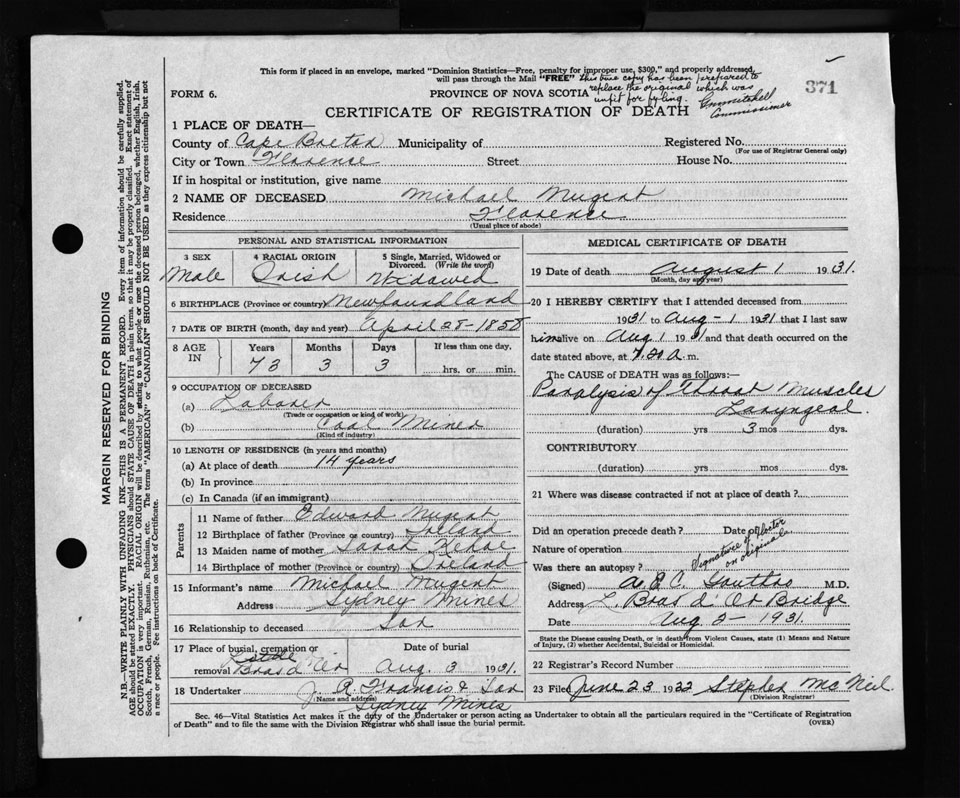 This form if placed in an envelope, marked "Dominion Statistics—Free, penalty for improper use, $300," and properly addressed,
will pass through the Mail "FREE" This true copy has been prepared to
FORM 6. PROVINCE OF NOVA SCOTIA replace the original which was 371
unfit for filing.
Commissioner
CERTIFICATE OF REGISTRATION OF DEATH
1 PLACE OF DEATH—
County of Cape Breton Municipality of Registered No.
(For use of Registrar General only)
City or Town Florence Street House No.
If in hospital or institution, give name
2 NAME OF DECEASED Michael Nugent
Residence Florence
(Usual place of abode)
PERSONAL AND STATISTICAL INFORMATION
3 SEX 4 RACIAL ORIGIN 5 Single, Married, Widowed or
Divorced. (Write the word)
Male Irish Widowed
6 BIRTHPLACE (Province or country) Newfoundland
7 DATE OF BIRTH (month, day and year) April 28-1858
8 AGE IN Years Months Days If less than one day,
73 3 3 hrs. or min.
9 OCCUPATION OF DECEASED
(a) Laborer
(Trade or occupation or kind of work)
(b) Coal Miner
(Kind of industry)
10 LENGTH OF RESIDENCE (in years and months)
(a) At place of death 14 years
(b) In province
(c) In Canada (if an immigrant)
Parents
11 Name of father Edward Nugent
12 Birthplace of father (Province or country) Ireland
13 Maiden name of mother Sarah Kehoe
14 Birthplace of mother (Province or country) Ireland
15 Informant's name Michael Nugent
Address Sydney Mines
16 Relationship to deceased Son
17 Place of burial, cremation or Date of burial
Little
removal Bras d'Or Aug. 3 1931.
18 Undertaker J. R. Francis & Son
(Name and address)
Sydney Mines
MEDICAL CERTIFICATE OF DEATH
19 Date of death August 1 1931.
(Month, day and year)
20 I HEREBY CERTIFY that I attended deceased from
1931 to Aug - 1 1931 that I last saw
him alive on Aug 1 1931 and that death occurred on the
date stated above, at m.
The CAUSE OF DEATH was as follows:—
Paralysis of Throat Muscles
Laryngeal.
(duration) yrs 3 mos dys.
CONTRIBUTORY
(duration) yrs mos dys.
21 Where was disease contracted if not at place of death?
Did an operation precede death? Date of
Nature of operation
Signature of Doctor
on original
Was there an autopsy?
(Signed) M.D.
Address L. Bras d' Or Bridge
Date Aug 2- 1931.
State the Disease causing Death, or in death from Violent Causes, state (1) Means and Nature
of Injury, (2) whether Accidental, Suicidal or Homicidal.
22 Registrar's Record Number
23 Filed June 23 1932 Stephen McNeil
(Division Registrar)
Sec. 46—Vital Statistics Act makes it the duty of the Undertaker or person acting as Undertaker to obtain all the particulars required in the "Certificate of Registration
of Death" and to file the same with the Division Registrar who shall issue the burial permit. (OVER)
MARGIN RESERVED FOR BINDING
N.B.—WRITE PLAINLY WITH UNFADING INK—THIS IS A PERMANENT RECORD. Every item of information should be carefully supplied.
AGE should be stated EXACTLY. PHYSICIANS should STATE CAUSE OF DEATH in plain terms, so that it may be properly classified. Exact statement of
OCCUPATION is very important. RACIAL ORIGIN will be described by stating to what people or race the deceased person belonged, whether English, Irish,
Scotch, French, German, Russian, Ruthenian, etc. The terms "AMERICAN" or "CANADIAN" SHOULD NOT BE USED as they express citizenship but not
a race or people. Fee instructions on back of Certificate.